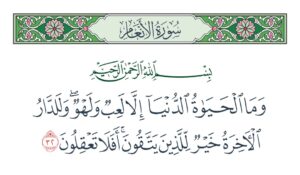 سُورَةُ الأَنْعَامِ
بِسْمِ اللَّهِ الرَّحْمَٰنِ الرَّحِيمِ
وَمَا ٱلْحَيَوٰةُ ٱلدُّنْيَآ إِلَّا لَعِبٌ وَلَهْوٌ ۖ وَلَلدَّارُ
ٱلْأَخِرَةُ خَيْرٌ لِّلَّذِينَ يَتَّقُونَ ۗ أَفَلَا تَعْقِلُونَ ٣٢